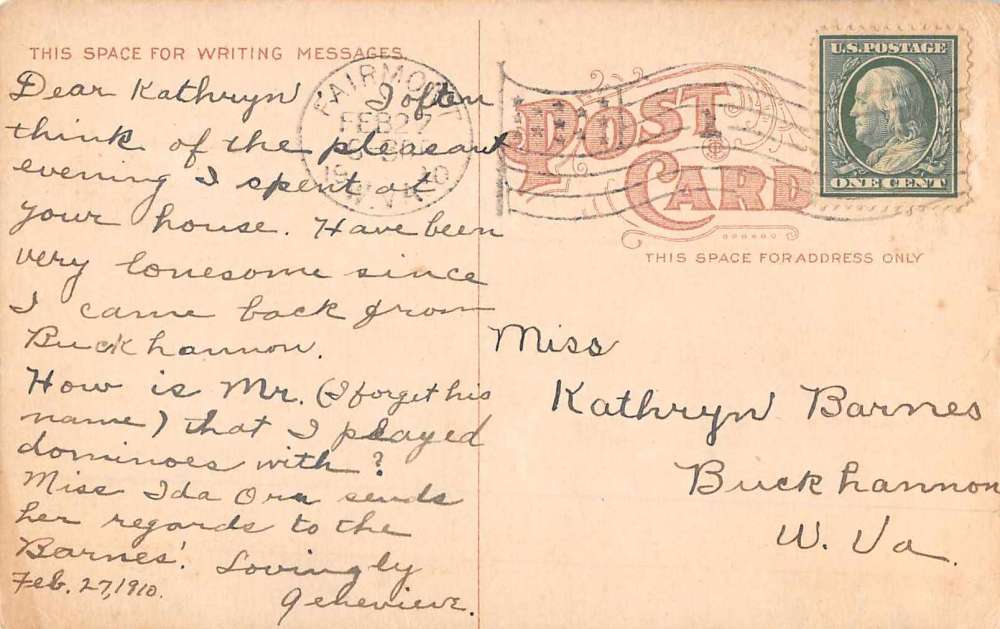 THIS SPACE FOR WRITING MESSAGES
Dear Kathryn I often
think of the pleasant
evening I spent at
your house. Have been
very lonesome since
I came back from
Buckhannon.
How is Mr. (I forget his
name) that I played
dominoes with?
Miss Ida Orr sends
her regards to the
Barnes'. Lovingly
Feb. 27, 1910. Genevieve.
FAIRMONT
FEB 27
1910
W.VA.
POST
CARD
U.S. POSTAGE
ONE CENT
THIS SPACE FOR ADDRESS ONLY
Miss
Kathryn Barnes
Buckhannon
W. Va.